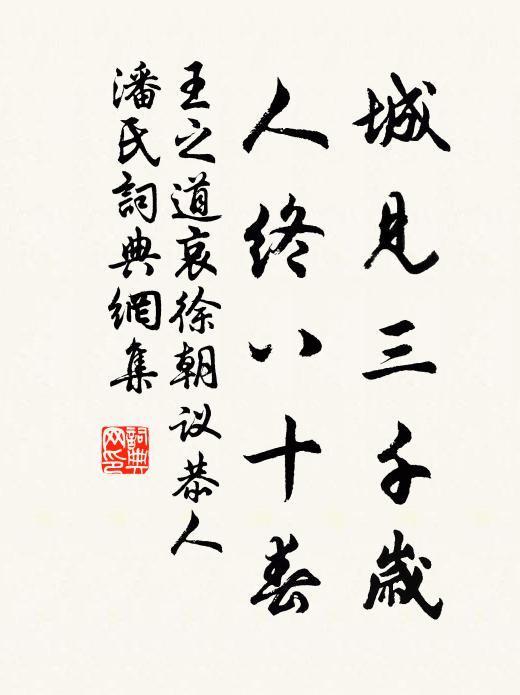 城見三千歲
人終八十春
王之道哀徐朝议恭人
潘氏詞典網集
詞典
网印